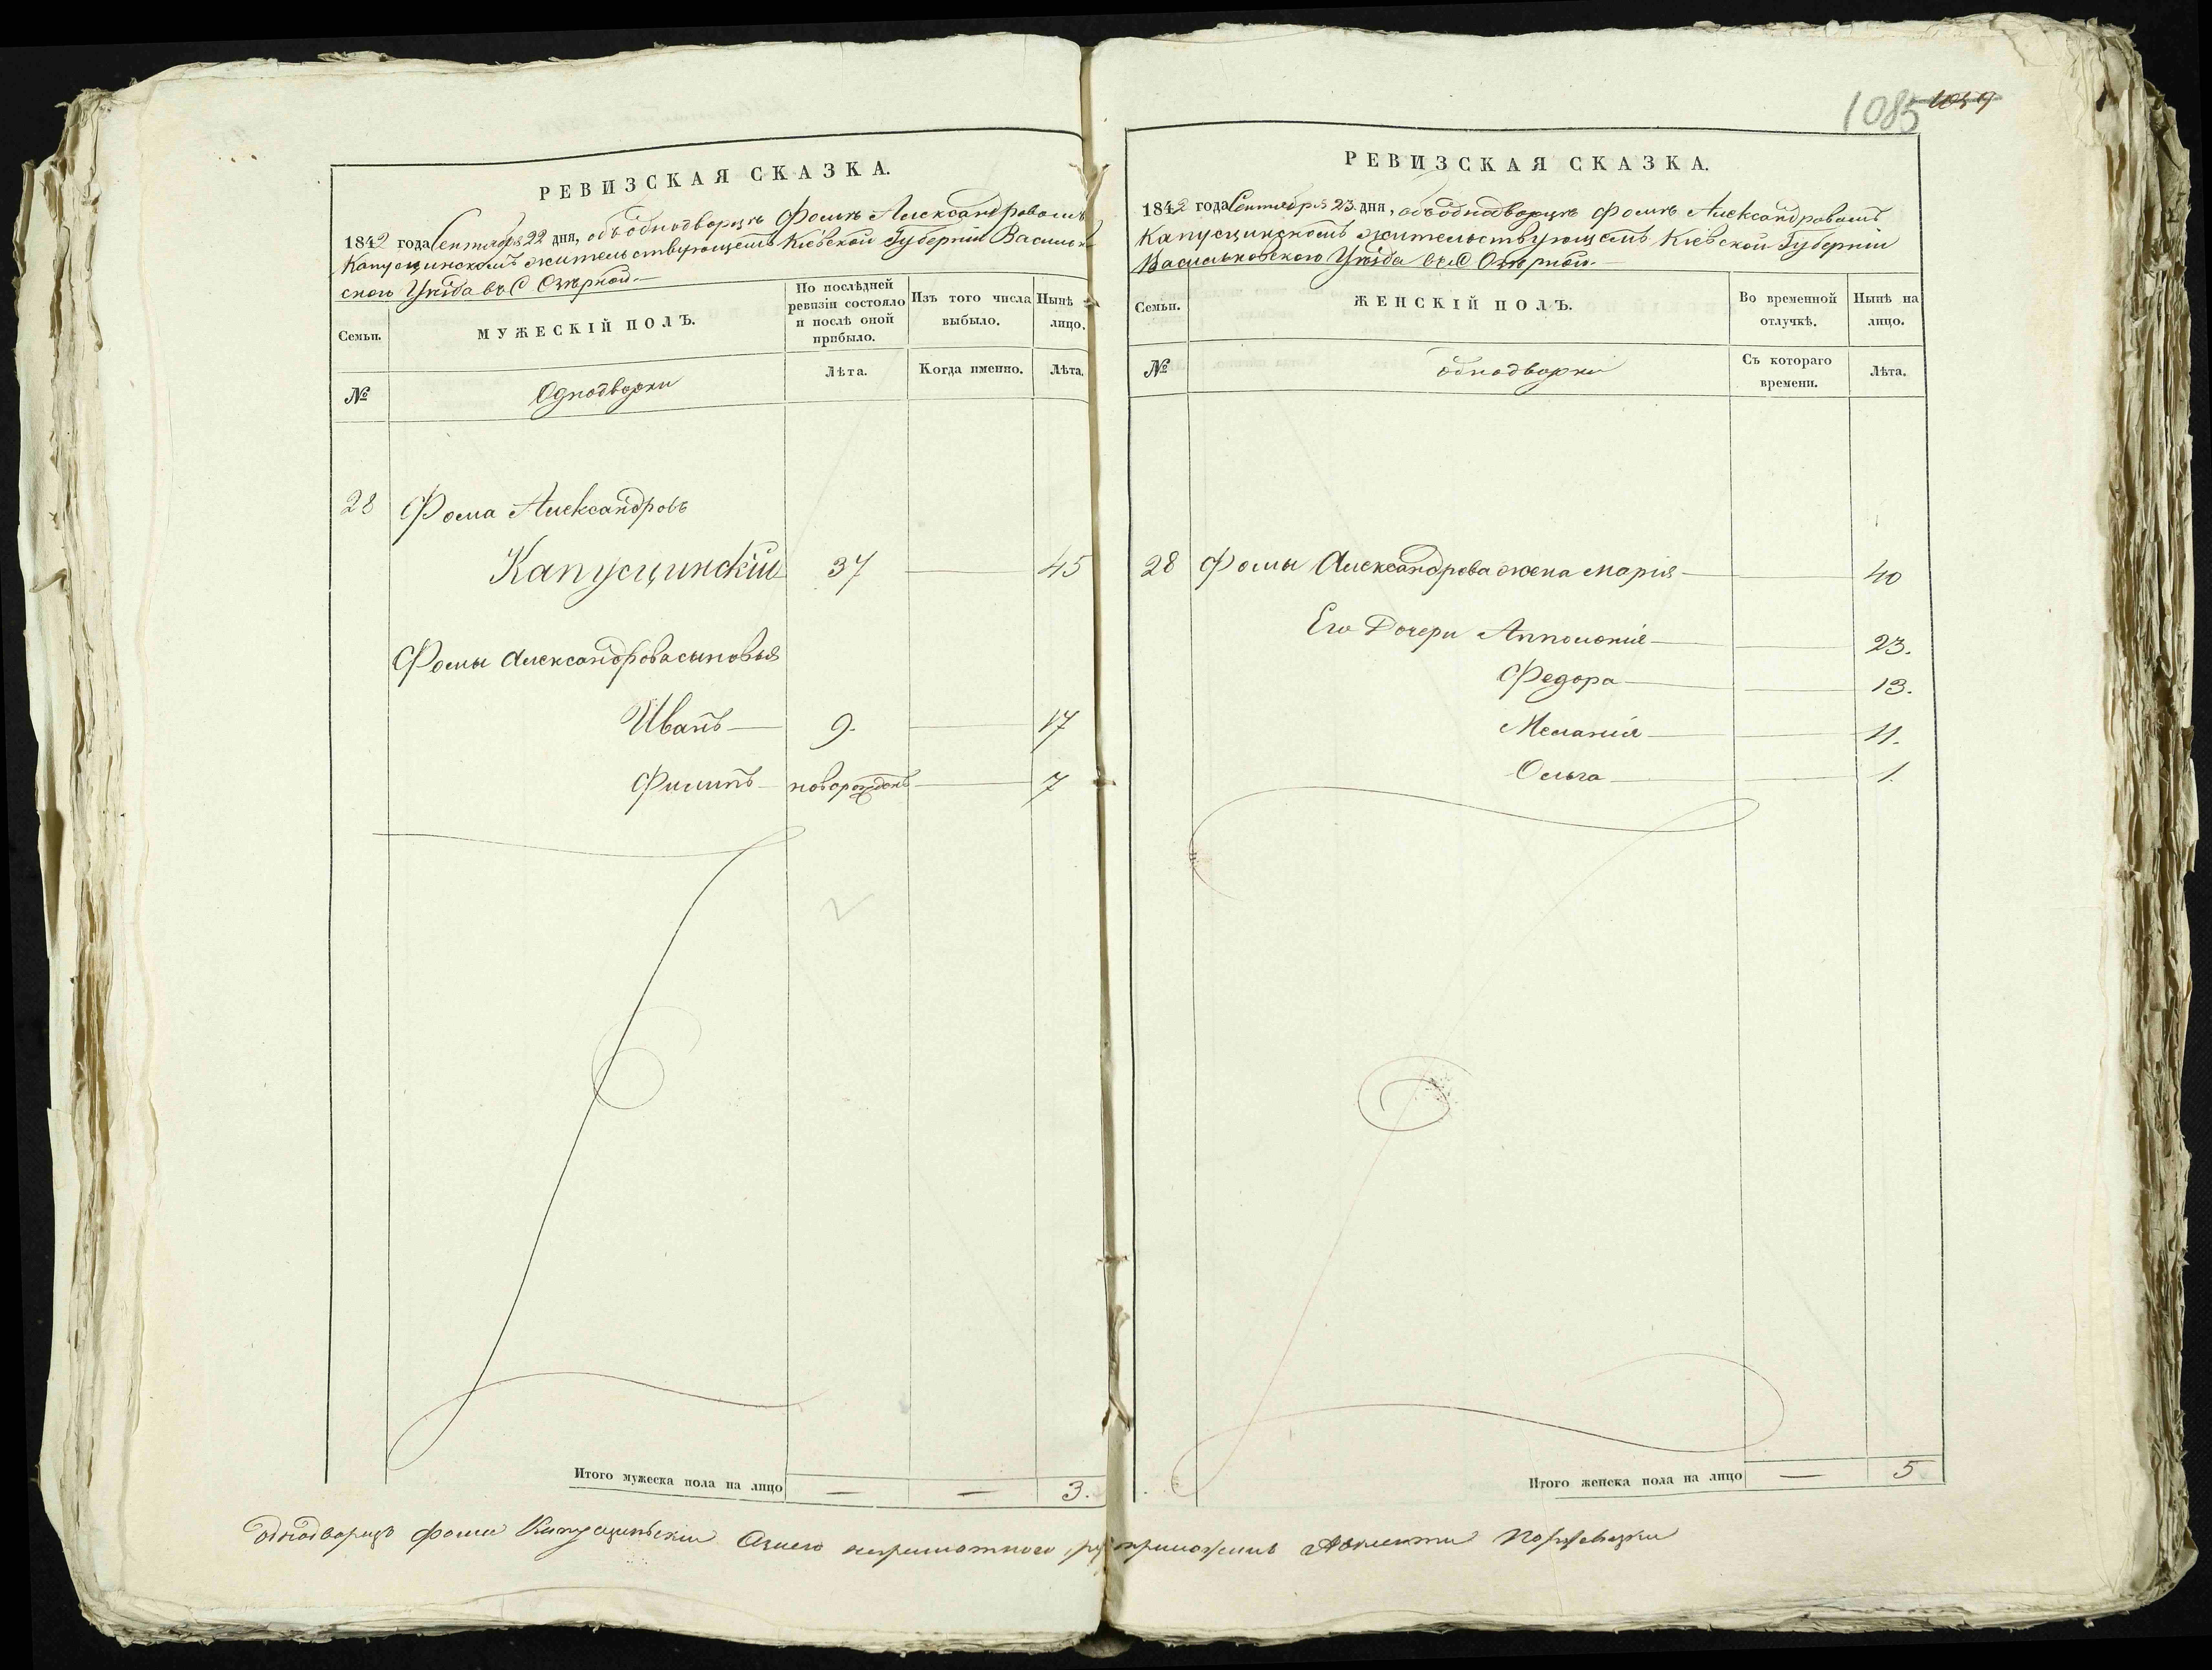 РЕВИЗСКАЯ СКАЗКА.
1842 года Сентября 22 дня, объ однодворцѣ Фомѣ Александровомъ
Капусцинскомъ жительствующемъ Кіевской Губерніи Васильков
ского Уѣзда въ С Озѣрной.
Семьи.
МУЖЕСКІЙ ПОЛЪ.
По послѣдней ревизіи состояло и послѣ оной прибыло.
Изъ того числа выбыло.
Нынѣ лицо.
№
Однодворки
Лѣта.
Когда именно.
Лѣта.
28 Фома Александровъ
Капусцинскій 37 — 45
Фомы Александрова сыновья
Иванъ — 9. — 17
Филипъ — новорожденъ — 7
Итого мужеска пола на лицо — — 3.
1085 1059
РЕВИЗСКАЯ СКАЗКА.
1842 года Сентября 23 дня, объ однодворцѣ Фомѣ Александровомъ
Капусцинскомъ жительствующемъ Кіевской Губерніи
Васильковского Уѣзда въ С Озѣрной.
Семьи.
ЖЕНСКІЙ ПОЛЪ.
Во временной отлучкѣ.
Нынѣ на лицо.
№
однодворки
Съ котораго времени.
Лѣта.
28 Фомы Александрова жена Марія — 40
Его Дочери Апполонія — 23.
Федора — 13.
Меланія — 11.
Ольга — 1.
Итого женска пола на лицо — 5
однодворецъ Фома Капусцинский Азанего неграмотного приложилъ